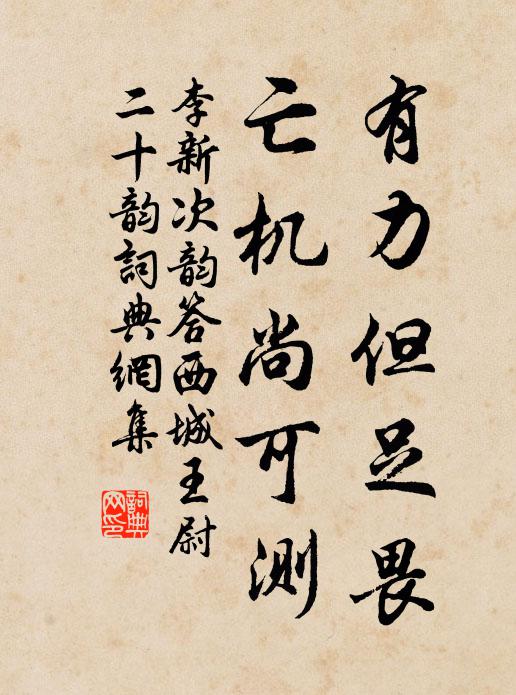 有力但足畏
亡机尚可测
李新次韵答西城王尉
二十韵詞典網集
詞典
网印